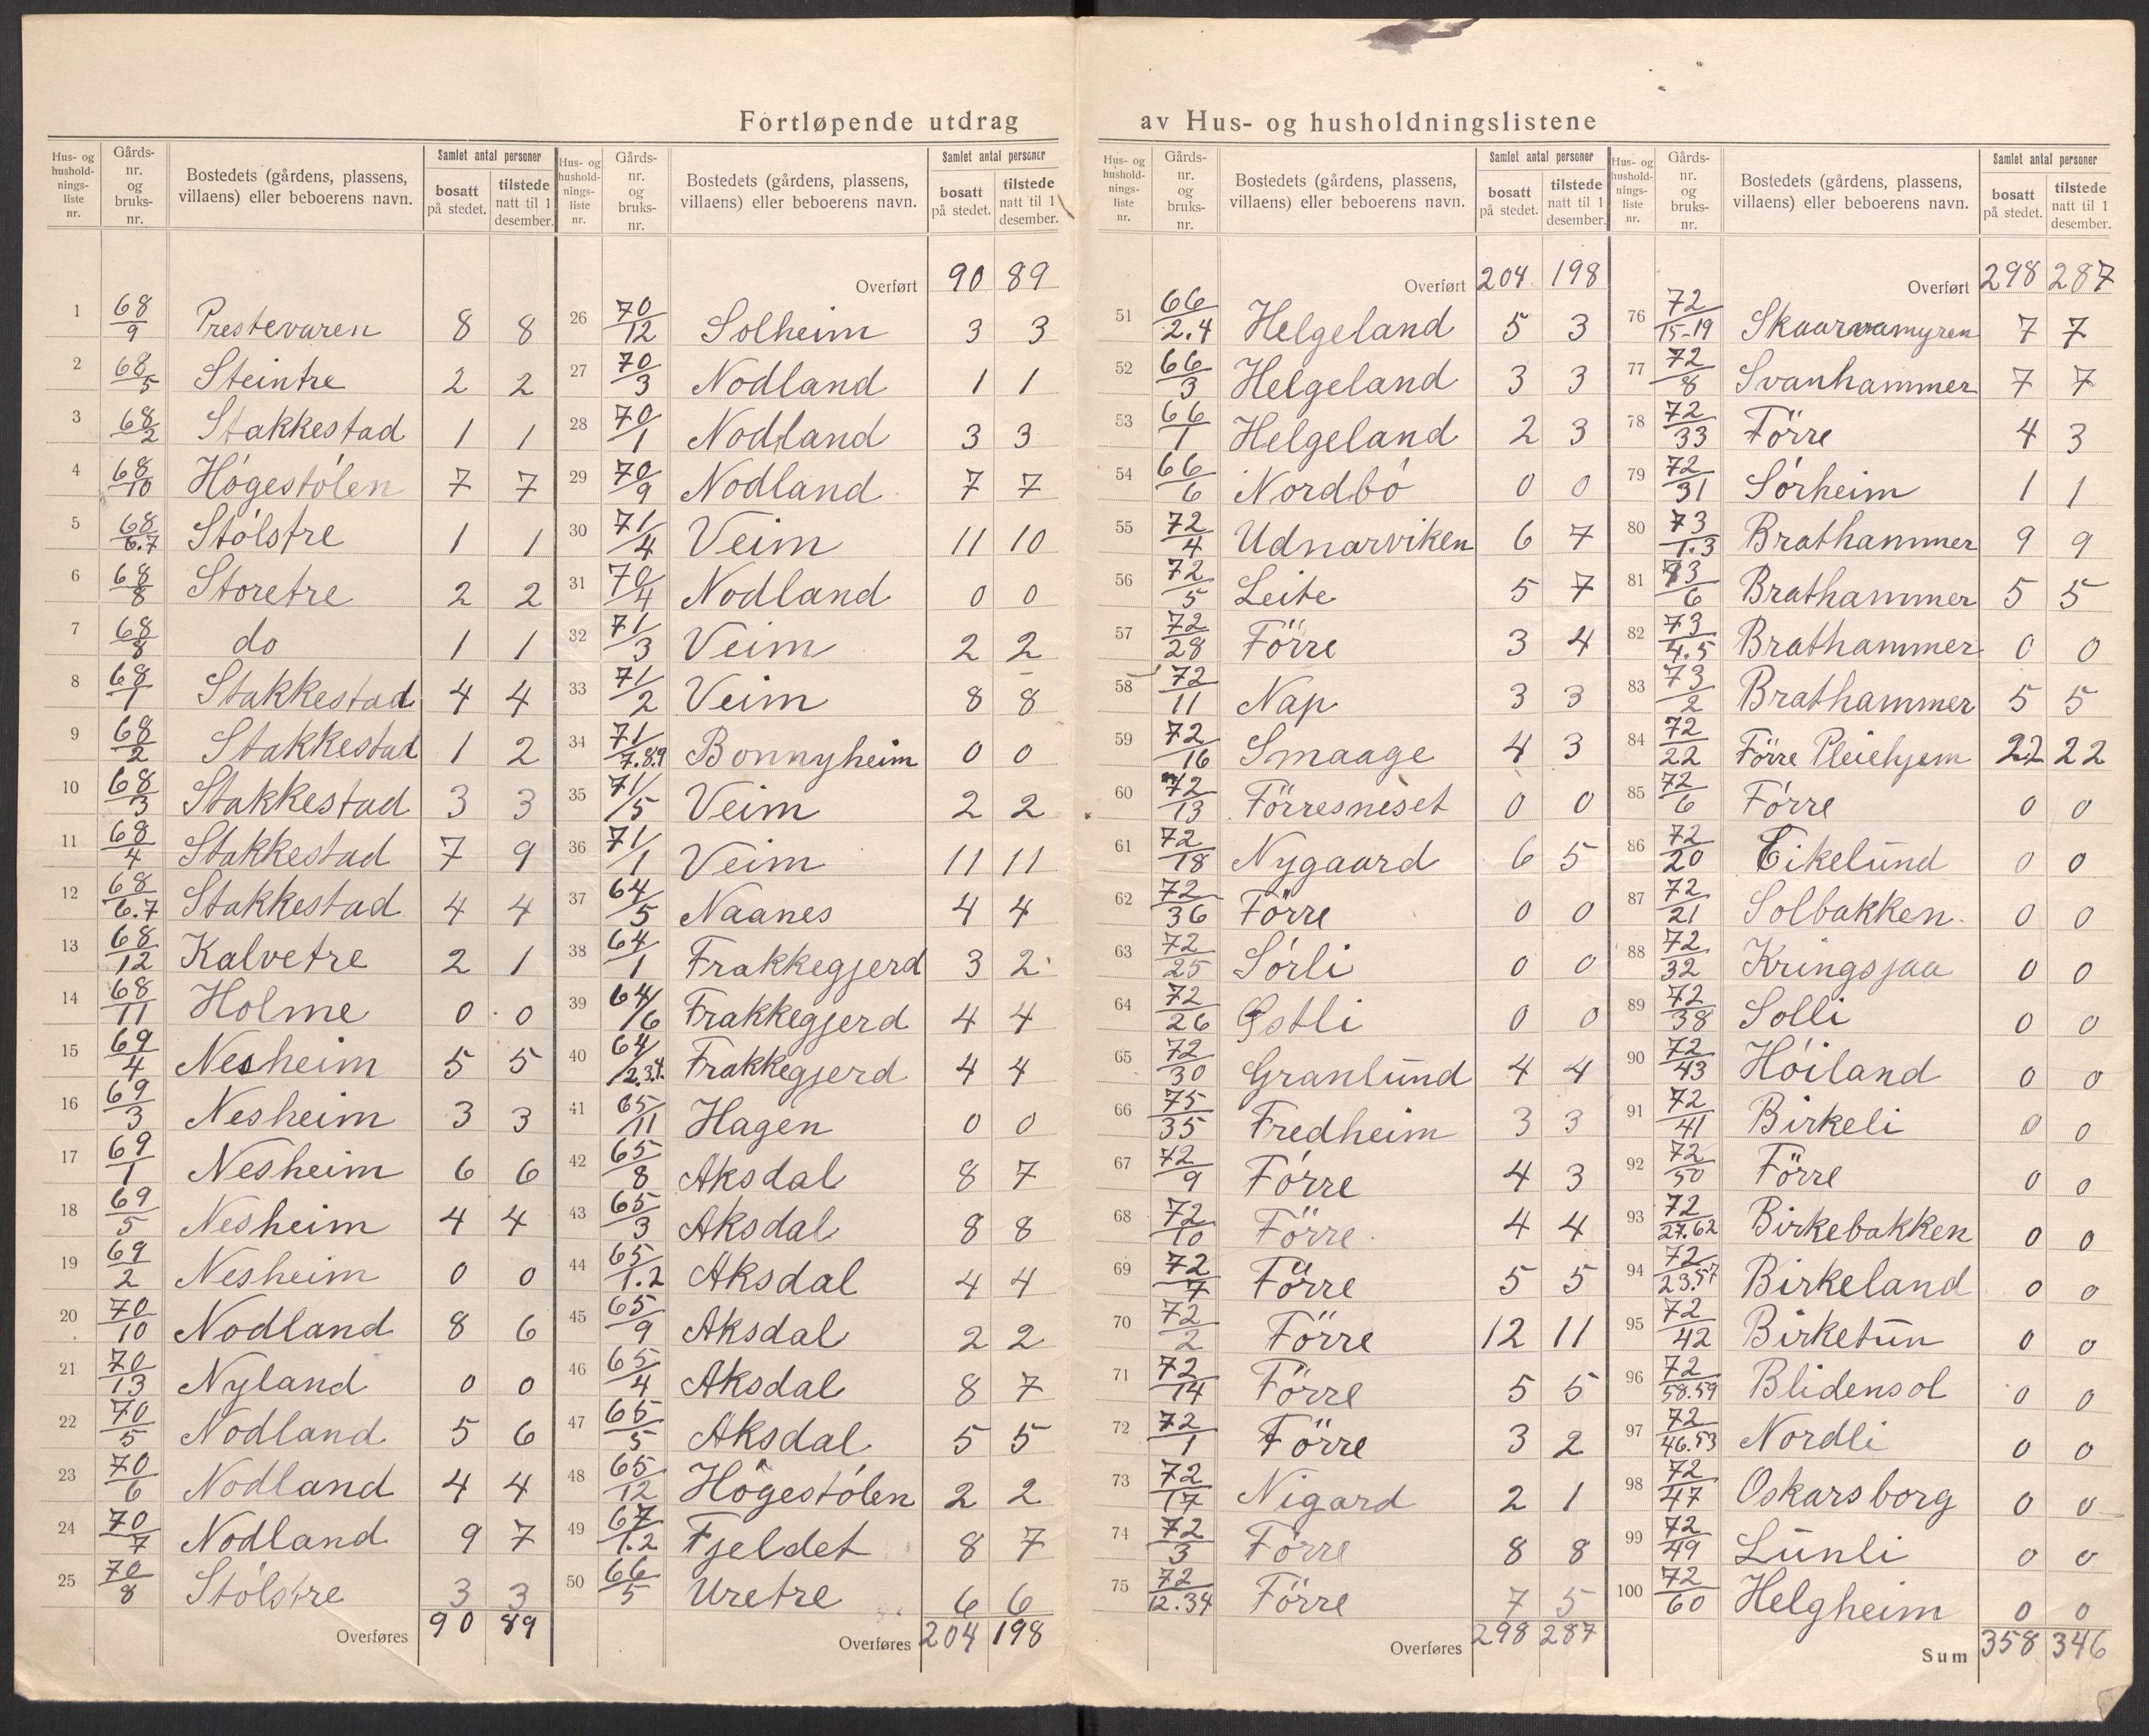 Fortløpende utdrag av Hus- og husholdningslistene
Hus- og hushold-nings-liste nr. | Gårds-nr. og bruks-nr. | Bostedets (gårdens, plassens, villaens) eller beboerens navn. | Samlet antal personer | bosatt på stedet. | tilstede natt til 1 desember.
1 68/9 Prestevaren 8 8
2 68/5 Steintre 2 2
3 68/2 Stakkestad 1 1
4 68/10 Högestölen 7 7
5 68/6.7 Stölstre 1 1
6 68/8 Storetre 2 2
7 68/8 do 1 1
8 68/1 Stakkestad 4 4
9 68/2 Stakkestad 1 2
10 68/3 Stakkestad 3 3
11 68/4 Stakkestad 7 9
12 68/6.7 Stakkestad 4 4
13 68/12 Kalvetre 2 1
14 68/11 Holme 0 0
15 69/4 Nesheim 5 5
16 69/3 Nesheim 3 3
17 69/1 Nesheim 6 6
18 69/5 Nesheim 4 4
19 69/2 Nesheim 0 0
20 70/10 Nodland 8 6
21 70/13 Nyland 0 0
22 70/5 Nodland 5 6
23 70/6 Nodland 4 4
24 70/7 Nodland 9 7
25 70/8 Stölstre 3 3
Overføres 90 89
Hus- og hushold-nings-liste nr. | Gårds-nr. og bruks-nr. | Bostedets (gårdens, plassens, villaens) eller beboerens navn. | Samlet antal personer | bosatt på stedet. | tilstede natt til 1 desember.
Overført 90 89
26 70/12 Solheim 3 3
27 70/3 Nodland 1 1
28 70/1 Nodland 3 3
29 70/9 Nodland 7 7
30 71/4 Veim 11 10
31 70/4 Nodland 0 0
32 71/3 Veim 2 2
33 71/2 Veim 8 8
34 71/7.8.9 Bonnyheim 0 0
35 71/5 Veim 2 2
36 71/1 Veim 11 11
37 64/5 Naanes 4 4
38 64/1 Frakkegjerd 3 2
39 64/6 Frakkegjerd 4 4
40 64/2.3.4. Frakkegjerd 4 4
41 65/11 Hagen 0 0
42 65/8 Aksdal 8 7
43 65/3 Aksdal 8 8
44 65/1.2 Aksdal 4 4
45 65/9 Aksdal 2 2
46 65/4 Aksdal 8 7
47 65/5 Aksdal 5 5
48 65/12 Högestölen 2 2
49 67/1.2 Fjeldet 8 7
50 66/5 Uretre 6 6
Overføres 204 198
Hus- og hushold-nings-liste nr. | Gårds-nr. og bruks-nr. | Bostedets (gårdens, plassens, villaens) eller beboerens navn. | Samlet antal personer | bosatt på stedet. | tilstede natt til 1 desember.
Overført 204 198
51 66/2.4 Helgeland 5 3
52 66/3 Helgeland 3 3
53 66/1 Helgeland 2 3
54 66/6 Nordbö 0 0
55 72/4 Udnarviken 6 7
56 72/5 Leite 5 7
57 72/28 Förre 3 4
58 72/11 Nap 3 3
59 72/16 Smaage 4 3
60 72/13 Förresneset 0 0
61 72/18 Nygaard 6 5
62 72/36 Förre 0 0
63 72/25 Sörli 0 0
64 72/26 Østli 0 0
65 72/30 Granlund 4 4
66 75/35 Fredheim 3 3
67 72/9 Förre 4 3
68 72/10 Förre 4 4
69 72/7 Förre 5 5
70 72/2 Förre 12 11
71 72/14 Förre 5 5
72 72/1 Förre 3 2
73 72/17 Nigard 2 1
74 72/3 Förre 8 8
75 72/12.34 Förre 7 5
Overføres 298 287
Hus- og hushold-nings-liste nr. | Gårds-nr. og bruks-nr. | Bostedets (gårdens, plassens, villaens) eller beboerens navn. | Samlet antal personer | bosatt på stedet. | tilstede natt til 1 desember.
Overført 298 287
76 72/15-19 7 7
77 72/8 Svanhammer 7 7
78 72/33 Förre 4 3
79 72/31 Sörheim 1 1
80 73/1.3 Brathammer 9 9
81 73/6 Brathammer 5 5
82 73/4.5 Brathammer 0 0
83 73/2 Brathammer 5 5
84 72/22 Förre Pleiehjem 22 22
85 72/6 Förre 0 0
86 72/20 Eikelund 0 0
87 72/21 Solbakken 0 0
88 72/32 Kringsjaa 0 0
89 72/38 Solli 0 0
90 72/43 Höiland 0 0
91 72/41 Birkeli 0 0
92 72/50 Förre 0 0
93 72/27.62 Birkebakken 0 0
94 72/23.57 Birkeland 0 0
95 72/42 Birketun 0 0
96 72/58.59 Blidensol 0 0
97 72/46.53 Nordli 0 0
98 72/47 Oskarsborg 0 0
99 72/49 Lunli 0 0
100 72/60 Helgheim 0 0
Sum 358 346